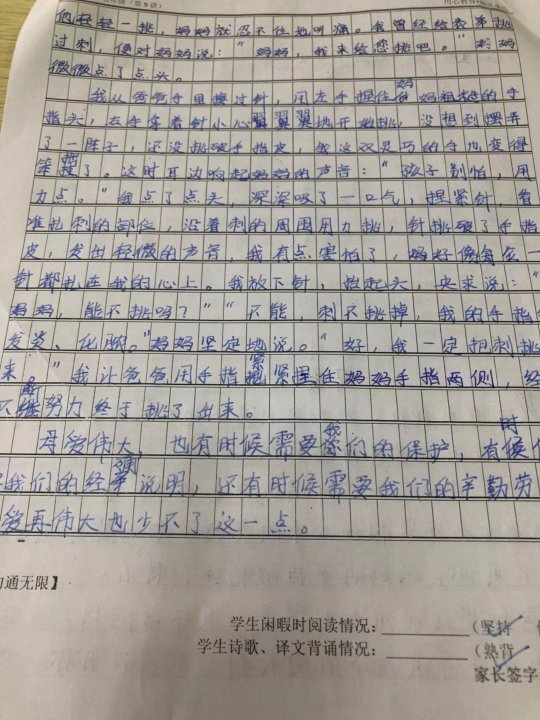 他轻轻一挑，妈妈就忍不住地叫痛。我曾经给表弟挑
过刺，便对妈妈说：“妈妈，我来给您挑吧。”妈妈
微微点了点头。
我从爸爸手里接过针，用左手捏住妈妈粗糙的手
指头，右手拿着针小心翼翼翼地开始挑，没想到摆弄
了一阵子，还没挑破手指皮，我这双灵巧的手也变得
笨拙了。这时耳边响起妈妈的声音：“孩子别怕，用
力点。”我点了点头，深深吸了一口气，捏紧针，看
准扎刺的部位，沿着刺的周围用力挑，针挑破了手指
皮，发出轻微的声音，我有点害怕了，好像每一
针都扎在我的心上。我放下针，抬起头，央求说：“
妈妈，能不挑吗？”“不能，刺不挑掉，我的手指
发炎、化脓。”妈妈坚定地说。“好，我一定把刺挑
来。”我让爸爸用手指紧紧捏住妈妈手指两侧，经
不断努力终于挑了出来。
母爱伟大，也有时候需要我们的保护，有时候
我们的经 说明，还有时候需要我们的辛勤劳
爱再伟大也少不了这一点。
沟通无限】
学生闲暇时阅读情况：（坚持
学生诗歌、译文背诵情况：（熟背
家长签字